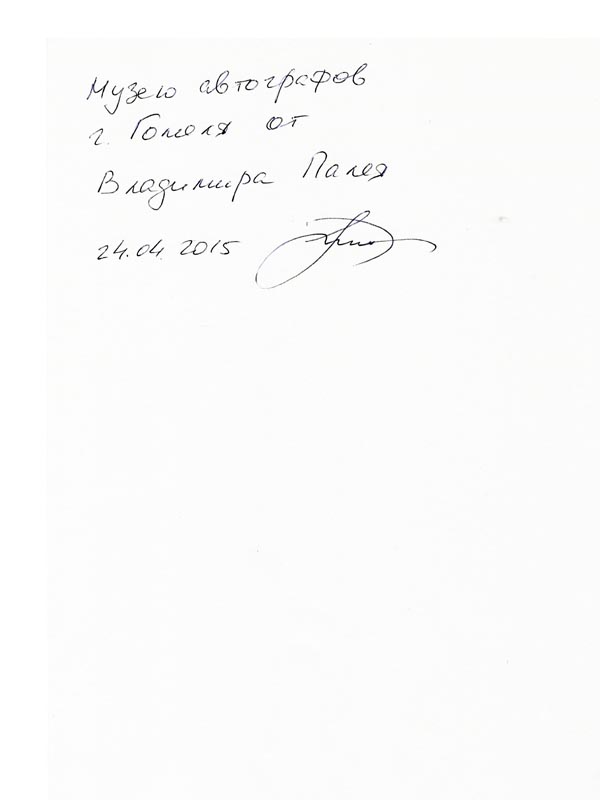 Музею автографов
г. Гомеля от
Владимира Палея
24.04.2015